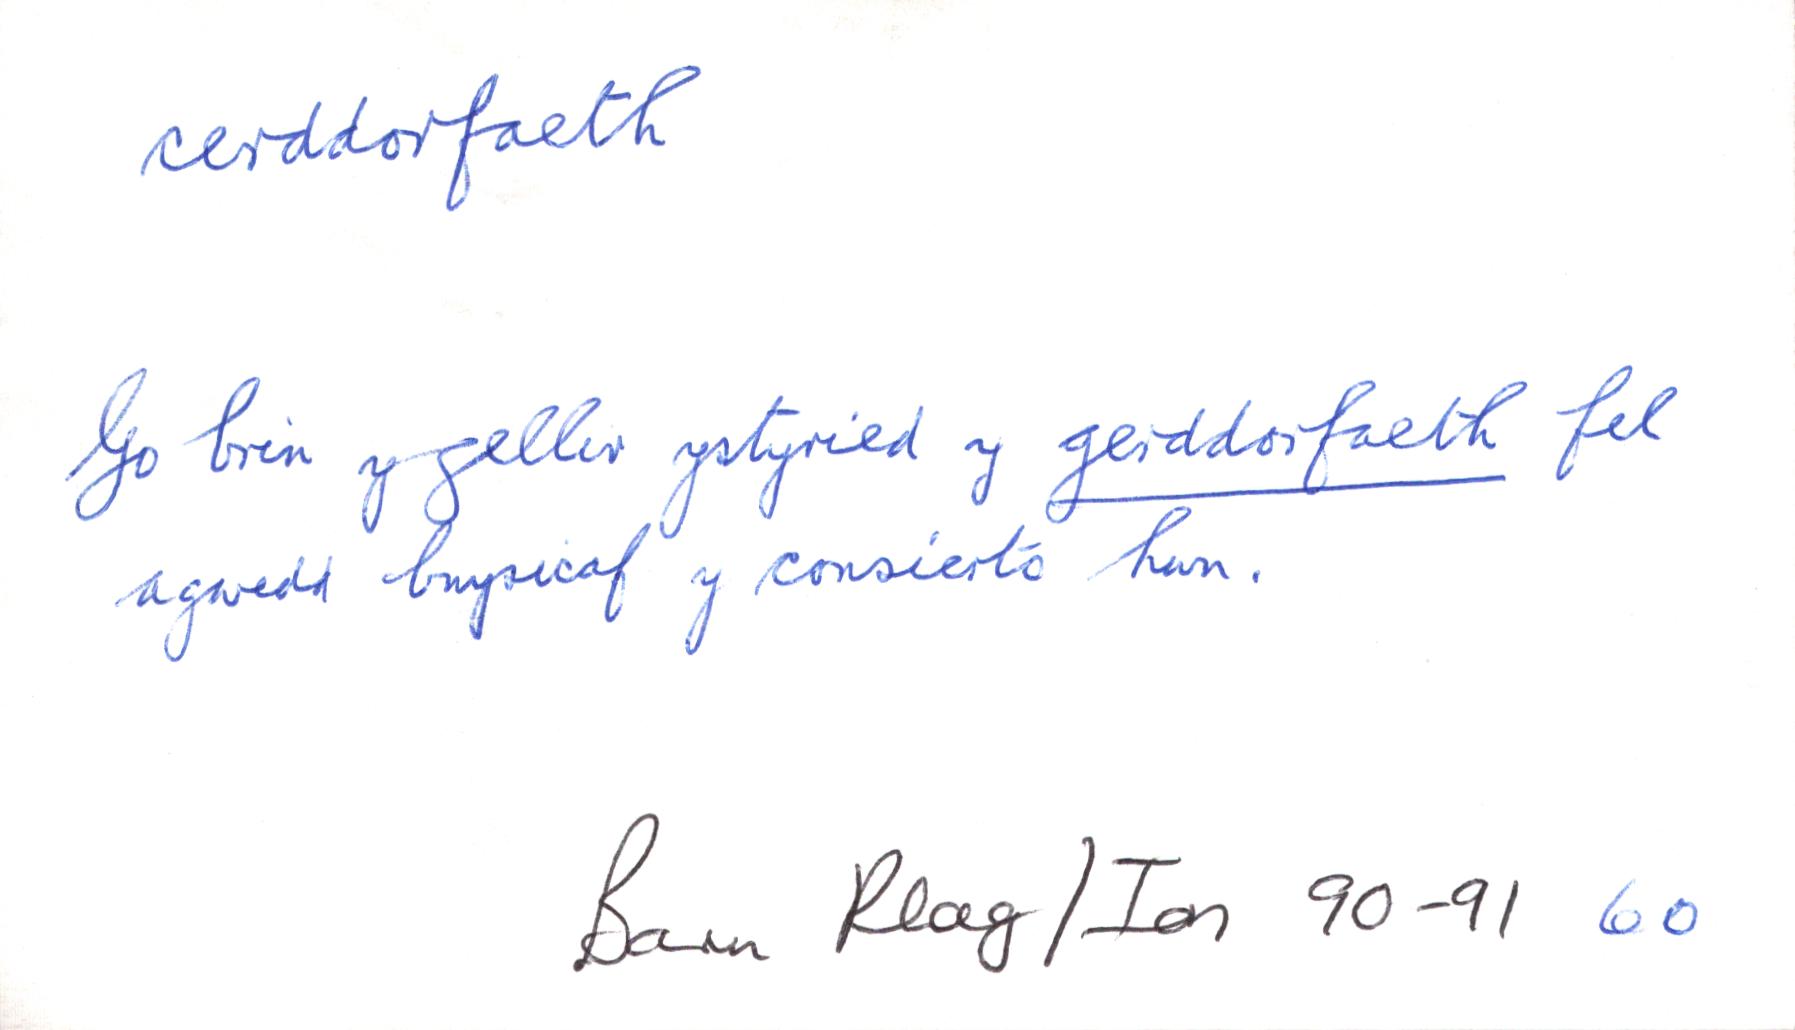 cerddorfaeth
Go brin y gellir ystyried y gerddorfaeth fel
agwedd bwysicaf y consierto hwn.
Barn Rhag/Ion 90-91 60